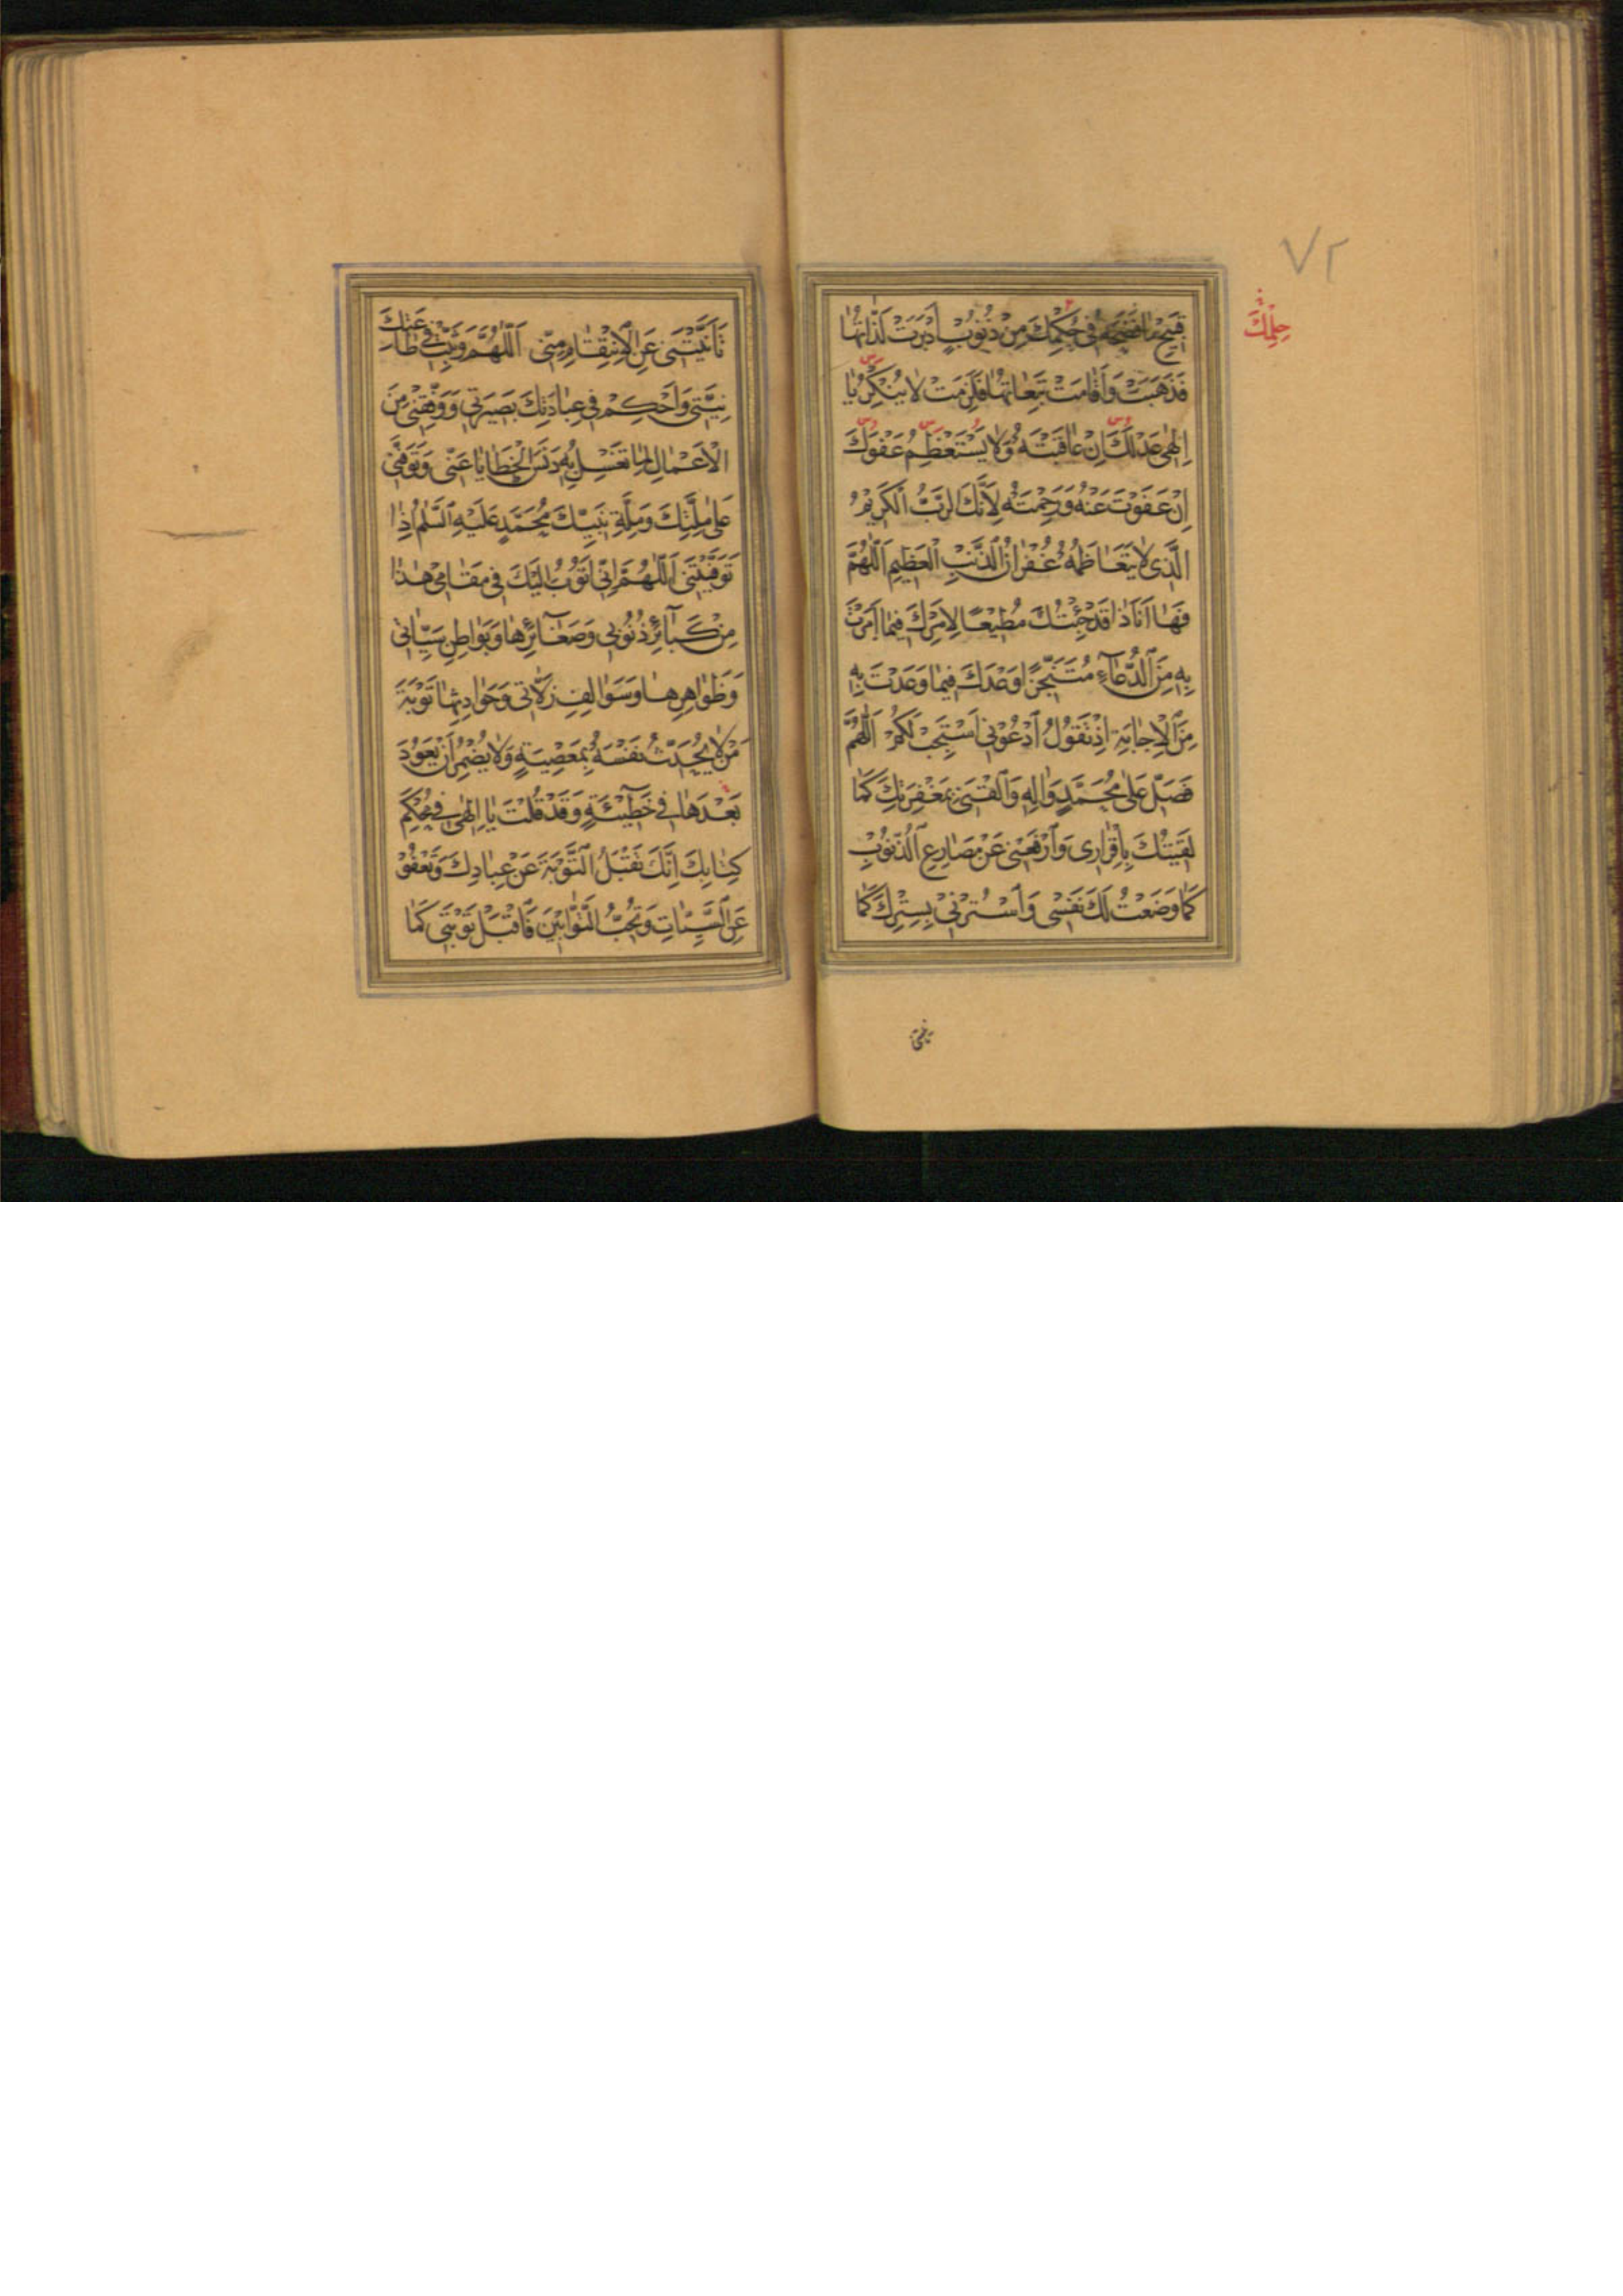 ٧٢
قَبِيحِ مَا فَضَحَهُ فِي حُكْمِكَ مِنْ ذُنُوبٍ أَدْبَرَتْ لَذَّاتُهَا
حِلْمِكَ
فَذَهَبَتْ وَأَقَامَتْ تَبِعَاتُهَا فَلَزِمَتْ لَا يُنْكِرُ يَا
إِلٰهِي عَدْلَكَ إِنْ عَاقَبْتَهُ وَلَا يَسْتَعْظِمُ عَفْوَكَ
إِنْ عَفَوْتَ عَنْهُ وَرَحِمْتَهُ لِأَنَّكَ الرَّبُّ الْكَرِيمُ
الَّذِي لَا يَتَعَاظَمُهُ غُفْرَانُ الذَّنْبِ الْعَظِيمِ اَللّٰهُمَّ
فَهَا أَنَا ذَا قَدْ جِئْتُكَ مُطِيعًا لِأَمْرِكَ فِيمَا أَمَرْتَ
بِهِ مِنَ الدُّعَاءِ مُتَنَجِّزًا وَعْدَكَ فِيمَا وَعَدْتَ بِهِ
مِنَ الْإِجَابَةِ إِذْ تَقُولُ اُدْعُونِي أَسْتَجِبْ لَكُمْ اَللّٰهُمَّ
فَصَلِّ عَلَى مُحَمَّدٍ وَآلِهِ وَالْقَنِي بِمَغْفِرَتِكَ كَمَا
لَقِيتُكَ بِإِقْرَارِي وَارْفَعْنِي عَنْ مَصَارِعِ الذُّنُوبِ
كَمَا وَضَعْتُ لَكَ نَفْسِي وَاسْتُرْنِي بِسِتْرِكَ كَمَا
تَأَنَّيْتَنِي عَنِ الْاِنْتِقَامِ مِنِّي اَللّٰهُمَّ وَثَبِّتْ فِي طَاعَتِكَ
نِيَّتِي وَأَحْكِمْ فِي عِبَادَتِكَ بَصِيرَتِي وَوَفِّقْنِي مِنَ
الْأَعْمَالِ لِمَا تَغْسِلُ بِهِ دَنَسَ الْخَطَايَا عَنِّي وَتَوَفَّنِي
عَلَى مِلَّتِكَ وَمِلَّةِ نَبِيِّكَ مُحَمَّدٍ عَلَيْهِ السَّلٰمُ إِذَا
تَوَفَّيْتَنِي اَللّٰهُمَّ إِنِّي أَتُوبُ إِلَيْكَ فِي مَقَامِي هٰذَا
مِنْ كَبَائِرِ ذُنُوبِي وَصَغَائِرِهَا وَبَوَاطِنِ سَيِّئَاتِي
وَظَوَاهِرِهَا وَسَوَالِفِ زَلَّاتِي وَحَوَادِثِهَا تَوْبَةَ
مَنْ لَا يُحَدِّثُ نَفْسَهُ بِمَعْصِيَةٍ وَلَا يُضْمِرُ أَنْ يَعُودَ
بَعْدَهَا فِي خَطِيئَةٍ وَقَدْ قُلْتَ يَا إِلٰهِي فِي مُحْكَمِ
كِتَابِكَ إِنَّكَ تَقْبَلُ التَّوْبَةَ عَنْ عِبَادِكَ وَتَعْفُو
عَنِ السَّيِّئَاتِ وَتُحِبُّ التَّوَّابِينَ فَاقْبَلْ تَوْبَتِي كَمَا